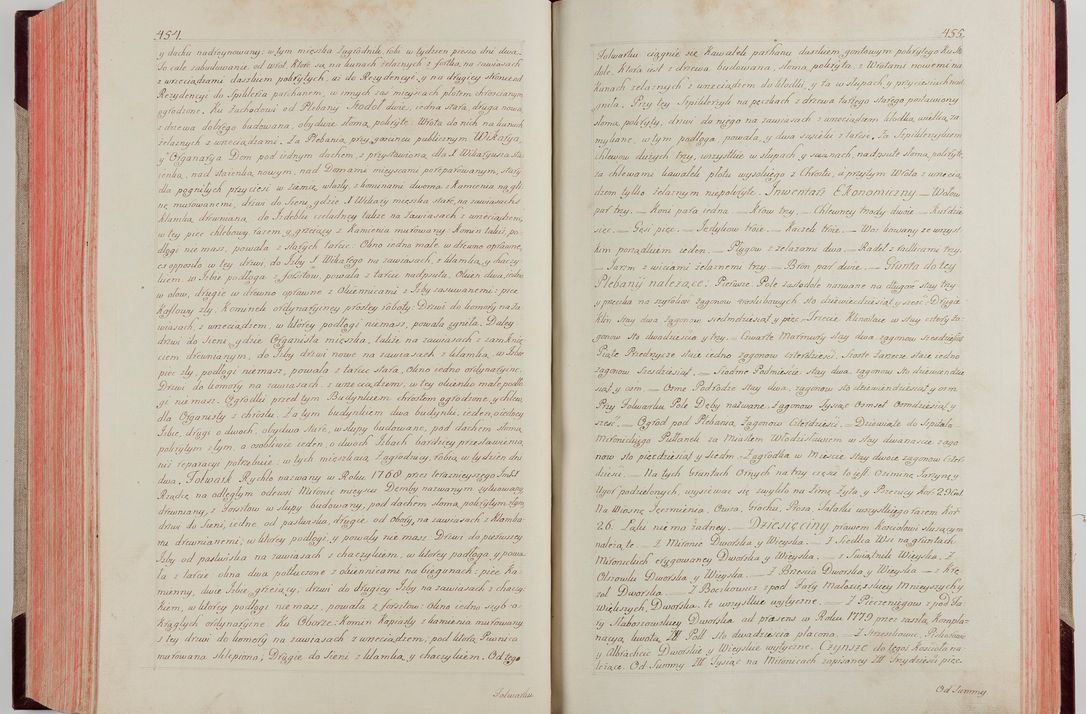 454.
y dachu nadreynowany; w tym mieszka Zagrodnik, robi w tydzien pieszo dni dwa.
To, całe zabudowanie od wrót, które są na kunach żelaznych z fortką, na zawiasach
z wrzeciądzami daszkiem pokrytych, aż do Rezydencyi, y na drugiey stronie od
Rezydencyi do Spiklerza parchanem, w innych zaś mieyscach płotem chrościanym
ogrodzone. Ku Zachodowi od Plebany Stodół dwie, iedna stara, druga nowa
z drzewa dobrego budowana, obydwie słomą pokryte. Wrota do nich na kunach
żelaznych z wrzeciądzami. Za Plebanią przy goscincu publicznym Wikarya,
y Organarya Dom pod iednym dachem, z przystawioną dla X Wikaryusza sta
ienką, nad staienką nowym, nad Domami mieyscami poreparowanym, stary
dla pognitych przycieśi w ziemię wlazły, z kominami dwoma z Kamienia na gli
nę murowanemi, drzwi do Sieni, gdzie X Wikary mieszka stare, na zawiasach z
klamką drewnianą, do Izdebki czeladney także na zawiasach z wrzeciądzem,
w tey piec chlebowy razem y grzeiący z Kamienia murowany Komin takiż, po
dłogi nie masz, powała z starych tarcic: Okno iedno małe w drewno oprawne,
ex opposito w tey drzwi do Izby X Wikarego na zawiasach, z klamką y chaczy
kiem, w Izbie podłoga z forsztów, powała z tarcic nadpsuta, Okien dwa, iedno
w ołów, drugie w drewno oprawne z Okiennicami z Izby zasuwanemi: piec
Kaflowy zły, Kominek ordynaryiney prostey roboty. Drzwi do komory na za
wiasach, z wrzeciądzem, w ktorey podłogi nie masz, powała zgniła. Daley
drzwi do Sieni, gdzie Organista mieszka, także na zawiasach z zamknię
ciem drewnianym, do Izby drzwi nowe na zawiasach z klamką, w Izbie
piec zły, podłogi nie masz, powała z tarcic stara, Okno iedno ordynaryine.
Drzwi do komory na zawiasach, z wrzeciądzem, w tey okienko małe, podło
gi nie masz. Ogrodki przed tym Budynkiem chrostem ogrodzone, y chlew
dla Organisty z chrostu. Za tym budynkiem dwa budynki, ieden, o iedney
Izbie, drugi o dwoch, obydwa stare, w słupy budowane, pod dachem słomą
pokrytym złym, a osobliwie ieden, o dwoch Izbach bardziey przestawienia
niż reparacyi potrzebuie: w tych mieszkaią Zagrodnicy, robią w tydzień dni
dwa. Folwark Rychło nazwany w Roku 1768 przez teraznieyszego Imść
Rządcę na odległym odewsi Mironic mieyscu Demby nazwanym zytuowany
drewniany, z Forsztow w słupy budowany, pod dachem słomą pokrytym złym,
drzwi do Sieni, iedne, od pastwiska, drugie, od Obory, na zawiasach z klamka
mi drewnianemi, w ktorey podłogi, y powały nie masz. Drzwi do pierwszey
Izby od pastwiska na zawiasach z chaczykiem, w ktorey podłoga, y powa
ła z tarcic okna dwa potłuczone z okiennicami na biegunach: piec Ka
mienny, dwie Izbie grzeiący, drzwi do drugiey Izby na zawiasach z chaczy
kiem, w ktorey podłogi nie masz, powała z forsztow: Okno iedno szyb o
krągłych ordynaryine. Ku Oborze: Komin Kapiasty z kamienia murowany
z tey drzwi do komory na zawiasach z wrzeciądzem: pod ktorą Piwnica
murowana sklepiona, Drugie do Sieni z klamką y chaczykiem. Od tego
Folwarku
455.
Folwarku ciągnie się kawałek parkanu daszkiem gontowym pokrytego ku Sto
dole, która iest z drzewa budowana, słomą pokryta, z Wrotami nowemi na
kunach żelaznych z wrzeciądzem do kłotki, y ta w słupach y przyciesiach nad
gniła. Przy tey Szpiklerzyk na pęczkach z drzewa tartego starego postawiony
słomą pokryty, drzwi do niego na zawiasach z wrzeciądzem kłotką wielką za
mykane, w tym podłoga, powała, y dwa sąsieki z tarcic. Za Szpiklerzykiem
chlewow dużych trzy, wszystkie w słupach y scianach, nadpsute słomą pokryte,
za chlewami kawałek płotu wysokiego z Chrostu, i przytym Wrota z wrzecią
dzem tylko żelaznym niepokryte. Inwentarz Ekonomiczny — Wołow
par trzy. — Koni para iedna. — Krow trzy. — Chlewney trzody dwoie. — Kur dzie
sięc. — Gęsi pięc. — Jędykow troie. — Kaczek troie. — Woz kowany ze wszyst
kim porządkiem ieden. — Pługow z żelazami dwa. — Radeł z radlicami trzy.
— Jarzm z wiciami żelaznemi trzy. — Bron par dwie. — Grunta do tey
Plebanij należące: Pierwsze, Pole za stodołe nazwane na długie stay trzy
y przeczka na szyrokie zagonow szesciubowych, sto dziewiędziesiąt y szesć. Drugie
klin stay dwa zagonow siedmdziesiąt y pięc. Trzecie, Klinskie w stay cztery za
gonow sto dwadzieścia y trzy. — Czwarte Marmury stay dwa zagonow Siedmdziesiąt.
Piąte Przednycze staie iedno zagonow czterdzieści. Szoste Zarzecze staie iedno
zagonow Szesdziesiąt. — Siodme Podmieście, stay dwa, zagonow sto dziewiendzie
siąt y osm. — Osme, Podrodze stay dwa, zagonow sto dziewiendziesiąt y osm.
Przy Folwarku Pole Dęby nazwane, Zagonow Tysiąc Osmset Osmdziesiąt y
szesć. — Ogrod pod Plebanią Zagonow Czterdzieści. — Dziewiąte do Szpitala
Mironickiego Półłanek za Miastem Włodzisławiem w stay dwanaście zago
now sto pięćdziesiąt y Siedm. Zagrodka w Mieście stay dwoie zagonow czter
dzieści. — Na tych Gruntach Ornych na trzy częsci to iest, Oziminę Jarzynę y
Ugor podzielonych, wysiewać się zwykło na Zimę Żyta, y Pszenicy kor: 29 Kał:
Na Wiosnę Jęczmienia, Owsa, Grochu, Prosa, Tatarki wszystkiego razem kor:
26. Łąki niemo żadney. — Dziesięciny prawem Kościołowi służącym
należą, te. — Z Mironic Dworska, y Wieyska. — Z Siedlca Wsi na gruntach
Mironickich erygowaney Dworska, y Wieyska. — z Swiątnik Wieyska, Z
Olszowki Dworska, y Wieyska. — Z Brzescia Dworska, y Wieyska. — z krę
zoł Dworska. — Z Boczkowic z pod Fary Małoszyckiey Mnieyszych y
większych, Dworska, te wszystkie wytyczne. — Z Pierzeniegow z pod Fa
ry Słaboszowskiey Dworska ad praesens w Roku 1779 przez zaszłą kompla
nacyą kwotą, Zł: Poll: sto dwadzieścia płacona. — Z Jrzenkowic, Piotrkowic
y Abłachcic Dworskie y Wieyskie wytyczne. Czynsze do tegoż Kościoła na
leżące. Od Summy Zł: Tysiąc na Mironicach zapisaney Zł: Trzydzieści pięc.
Od Summy